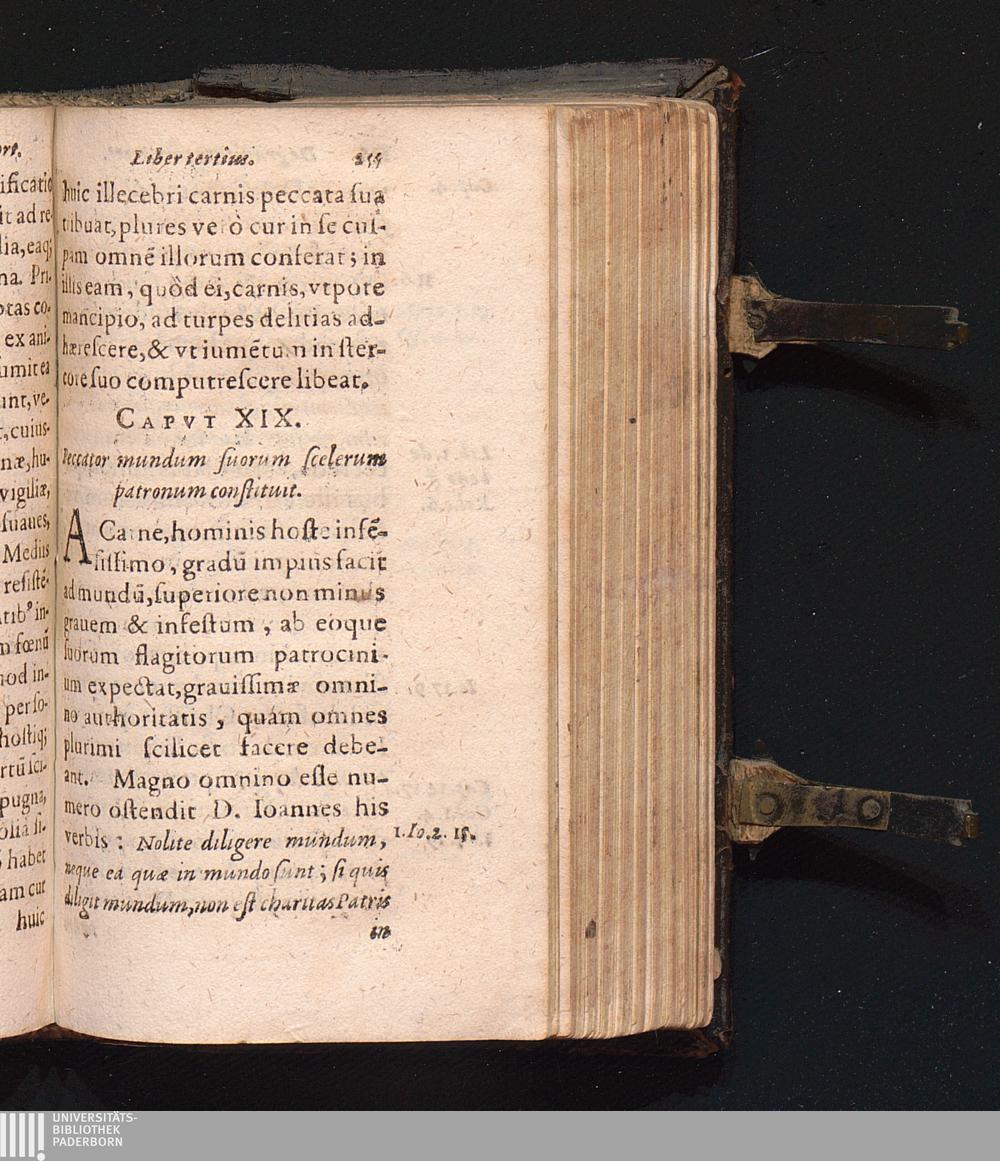 Liber tertius. 255
huic illecebri carnis peccata ſua
tribuat, plures verò cur in ſe cul-
pam omnē illorum conferat; in
illis eam, quòd ei, carnis, vtpote
mancipio, ad turpes delitias ad-
hæreſcere, & vt iumētum in ſter-
core ſuo computreſcere libeat.
CAPVT XIX.
Peccator mundum ſuorum ſcelerum
patronum conſtituit.
A Carne, hominis hoſte infē-
ſiſſimo, gradū impius facit
ad mundū, ſuperiore non minus
grauem & infeſtum, ab eoque
ſuorum flagitorum patrocini-
um expectat, grauiſſimæ omni-
no authoritatis, quam omnes
plurimi ſcilicet facere debe-
ant. Magno omnino eſſe nu-
mero oſtendit D. Ioannes his
verbis: Nolite diligere mundum,
neque ea quæ in mundo ſunt; ſi quis
diligit mundum, non eſt charitas Patris
1. Io. 2. 15.
ificatio
it ad re-
lia, eaq;
na. Pri-
co-
ex ani-
umit ea
unt, ve-
cuius-
næ, hu-
vigiliæ,
ſuaues,
Medius
reſiſtē-
in-
fœnū
in-
perſo-
hoſtiq;
pugna,
habet
am cur
huic
UNIVERSITÄTS-
BIBLIOTHEK
PADERBORN